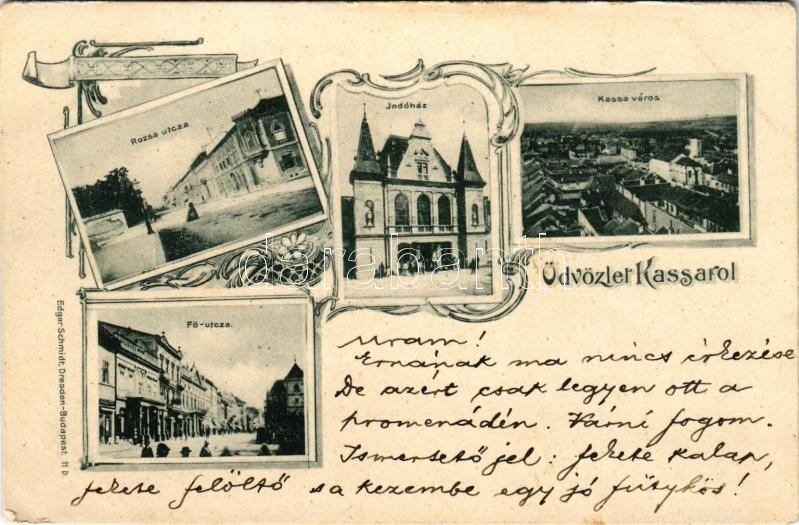 Rozsa utcza
Indóház
Kassa város
Üdvözlet Kassarol
Fő-utcza.
Edgar Schmidt, Dresden-Budapest. 11 D.
darabanth
Uram!
Ernának ma nincs érkezése
De azért csak legyen ott a
promenádén. Várni fogom.
Ismertető jel: fekete kalap,
fekete felöltő s a kezembe egy jó fütykös!